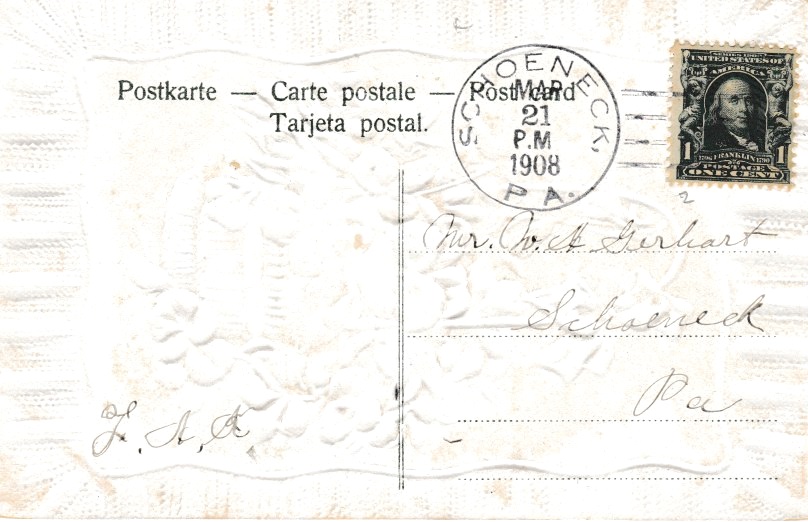 Postkarte — Carte postale — Post card
Tarjeta postal.
SCHOENECK,
MAR
21
P.M
1908
PA.
SERIES 1902
UNITED STATES OF
AMERICA
1 1
1706 FRANKLIN 1790
POSTAGE
ONE CENT
2
Mr. W. H. Gerhart
Schoeneck
Pa
F. A. K